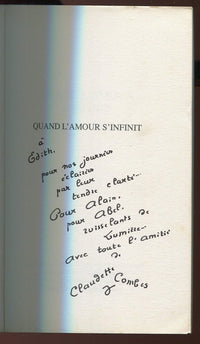 QUAND L'AMOUR S'INFINIT
à
Edith.
pour nos journées
éclairées
par leur
tendre clarté...
Pour Alain.
pour Abel.
ruisselants de
lumière...
avec toute l'amitié
de
Claudette
Combes